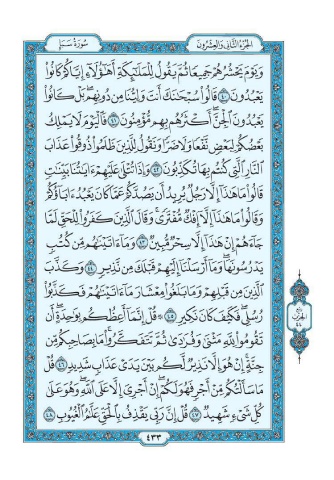 الجزء الثاني والعشرون سورة سبإ
وَيَوْمَ يَحْشُرُهُمْ جَمِيعًا ثُمَّ يَقُولُ لِلْمَلَٰٓئِكَةِ أَهَٰٓؤُلَآءِ إِيَّاكُمْ كَانُوا۟
يَعْبُدُونَ ٤٠ قَالُوا۟ سُبْحَٰنَكَ أَنتَ وَلِيُّنَا مِن دُونِهِم ۖ بَلْ كَانُوا۟
يَعْبُدُونَ ٱلْجِنَّ ۖ أَكْثَرُهُم بِهِم مُّؤْمِنُونَ ٤١ فَٱلْيَوْمَ لَا يَمْلِكُ
بَعْضُكُمْ لِبَعْضٍ نَّفْعًا وَلَا ضَرًّا وَنَقُولُ لِلَّذِينَ ظَلَمُوا۟ ذُوقُوا۟ عَذَابَ
ٱلنَّارِ ٱلَّتِى كُنتُم بِهَا تُكَذِّبُونَ ٤٢ وَإِذَا تُتْلَىٰ عَلَيْهِمْ ءَايَٰتُنَا بَيِّنَٰتٍ
قَالُوا۟ مَا هَٰذَآ إِلَّا رَجُلٌ يُرِيدُ أَن يَصُدَّكُمْ عَمَّا كَانَ يَعْبُدُ ءَابَآؤُكُمْ
وَقَالُوا۟ مَا هَٰذَآ إِلَّآ إِفْكٌ مُّفْتَرًى ۚ وَقَالَ ٱلَّذِينَ كَفَرُوا۟ لِلْحَقِّ لَمَّا
جَآءَهُمْ إِنْ هَٰذَآ إِلَّا سِحْرٌ مُّبِينٌ ٤٣ وَمَآ ءَاتَيْنَٰهُم مِّن كُتُبٍ
يَدْرُسُونَهَا ۖ وَمَآ أَرْسَلْنَآ إِلَيْهِمْ قَبْلَكَ مِن نَّذِيرٍ ٤٤ وَكَذَّبَ
ٱلَّذِينَ مِن قَبْلِهِمْ وَمَا بَلَغُوا۟ مِعْشَارَ مَآ ءَاتَيْنَٰهُمْ فَكَذَّبُوا۟
رُسُلِى ۖ فَكَيْفَ كَانَ نَكِيرِ ٤٥ ۞ قُلْ إِنَّمَآ أَعِظُكُم بِوَٰحِدَةٍ ۖ أَن
تَقُومُوا۟ لِلَّهِ مَثْنَىٰ وَفُرَٰدَىٰ ثُمَّ تَتَفَكَّرُوا۟ ۚ مَا بِصَاحِبِكُم مِّن
جِنَّةٍ ۚ إِنْ هُوَ إِلَّا نَذِيرٌ لَّكُم بَيْنَ يَدَىْ عَذَابٍ شَدِيدٍ ٤٦ قُلْ
مَا سَأَلْتُكُم مِّنْ أَجْرٍ فَهُوَ لَكُمْ ۖ إِنْ أَجْرِىَ إِلَّا عَلَى ٱللَّهِ ۖ وَهُوَ عَلَىٰ
كُلِّ شَىْءٍ شَهِيدٌ ٤٧ قُلْ إِنَّ رَبِّى يَقْذِفُ بِٱلْحَقِّ عَلَّٰمُ ٱلْغُيُوبِ ٤٨
٤٣٣